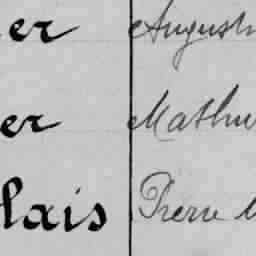 er Augustı
er Mathu
lais Pierre